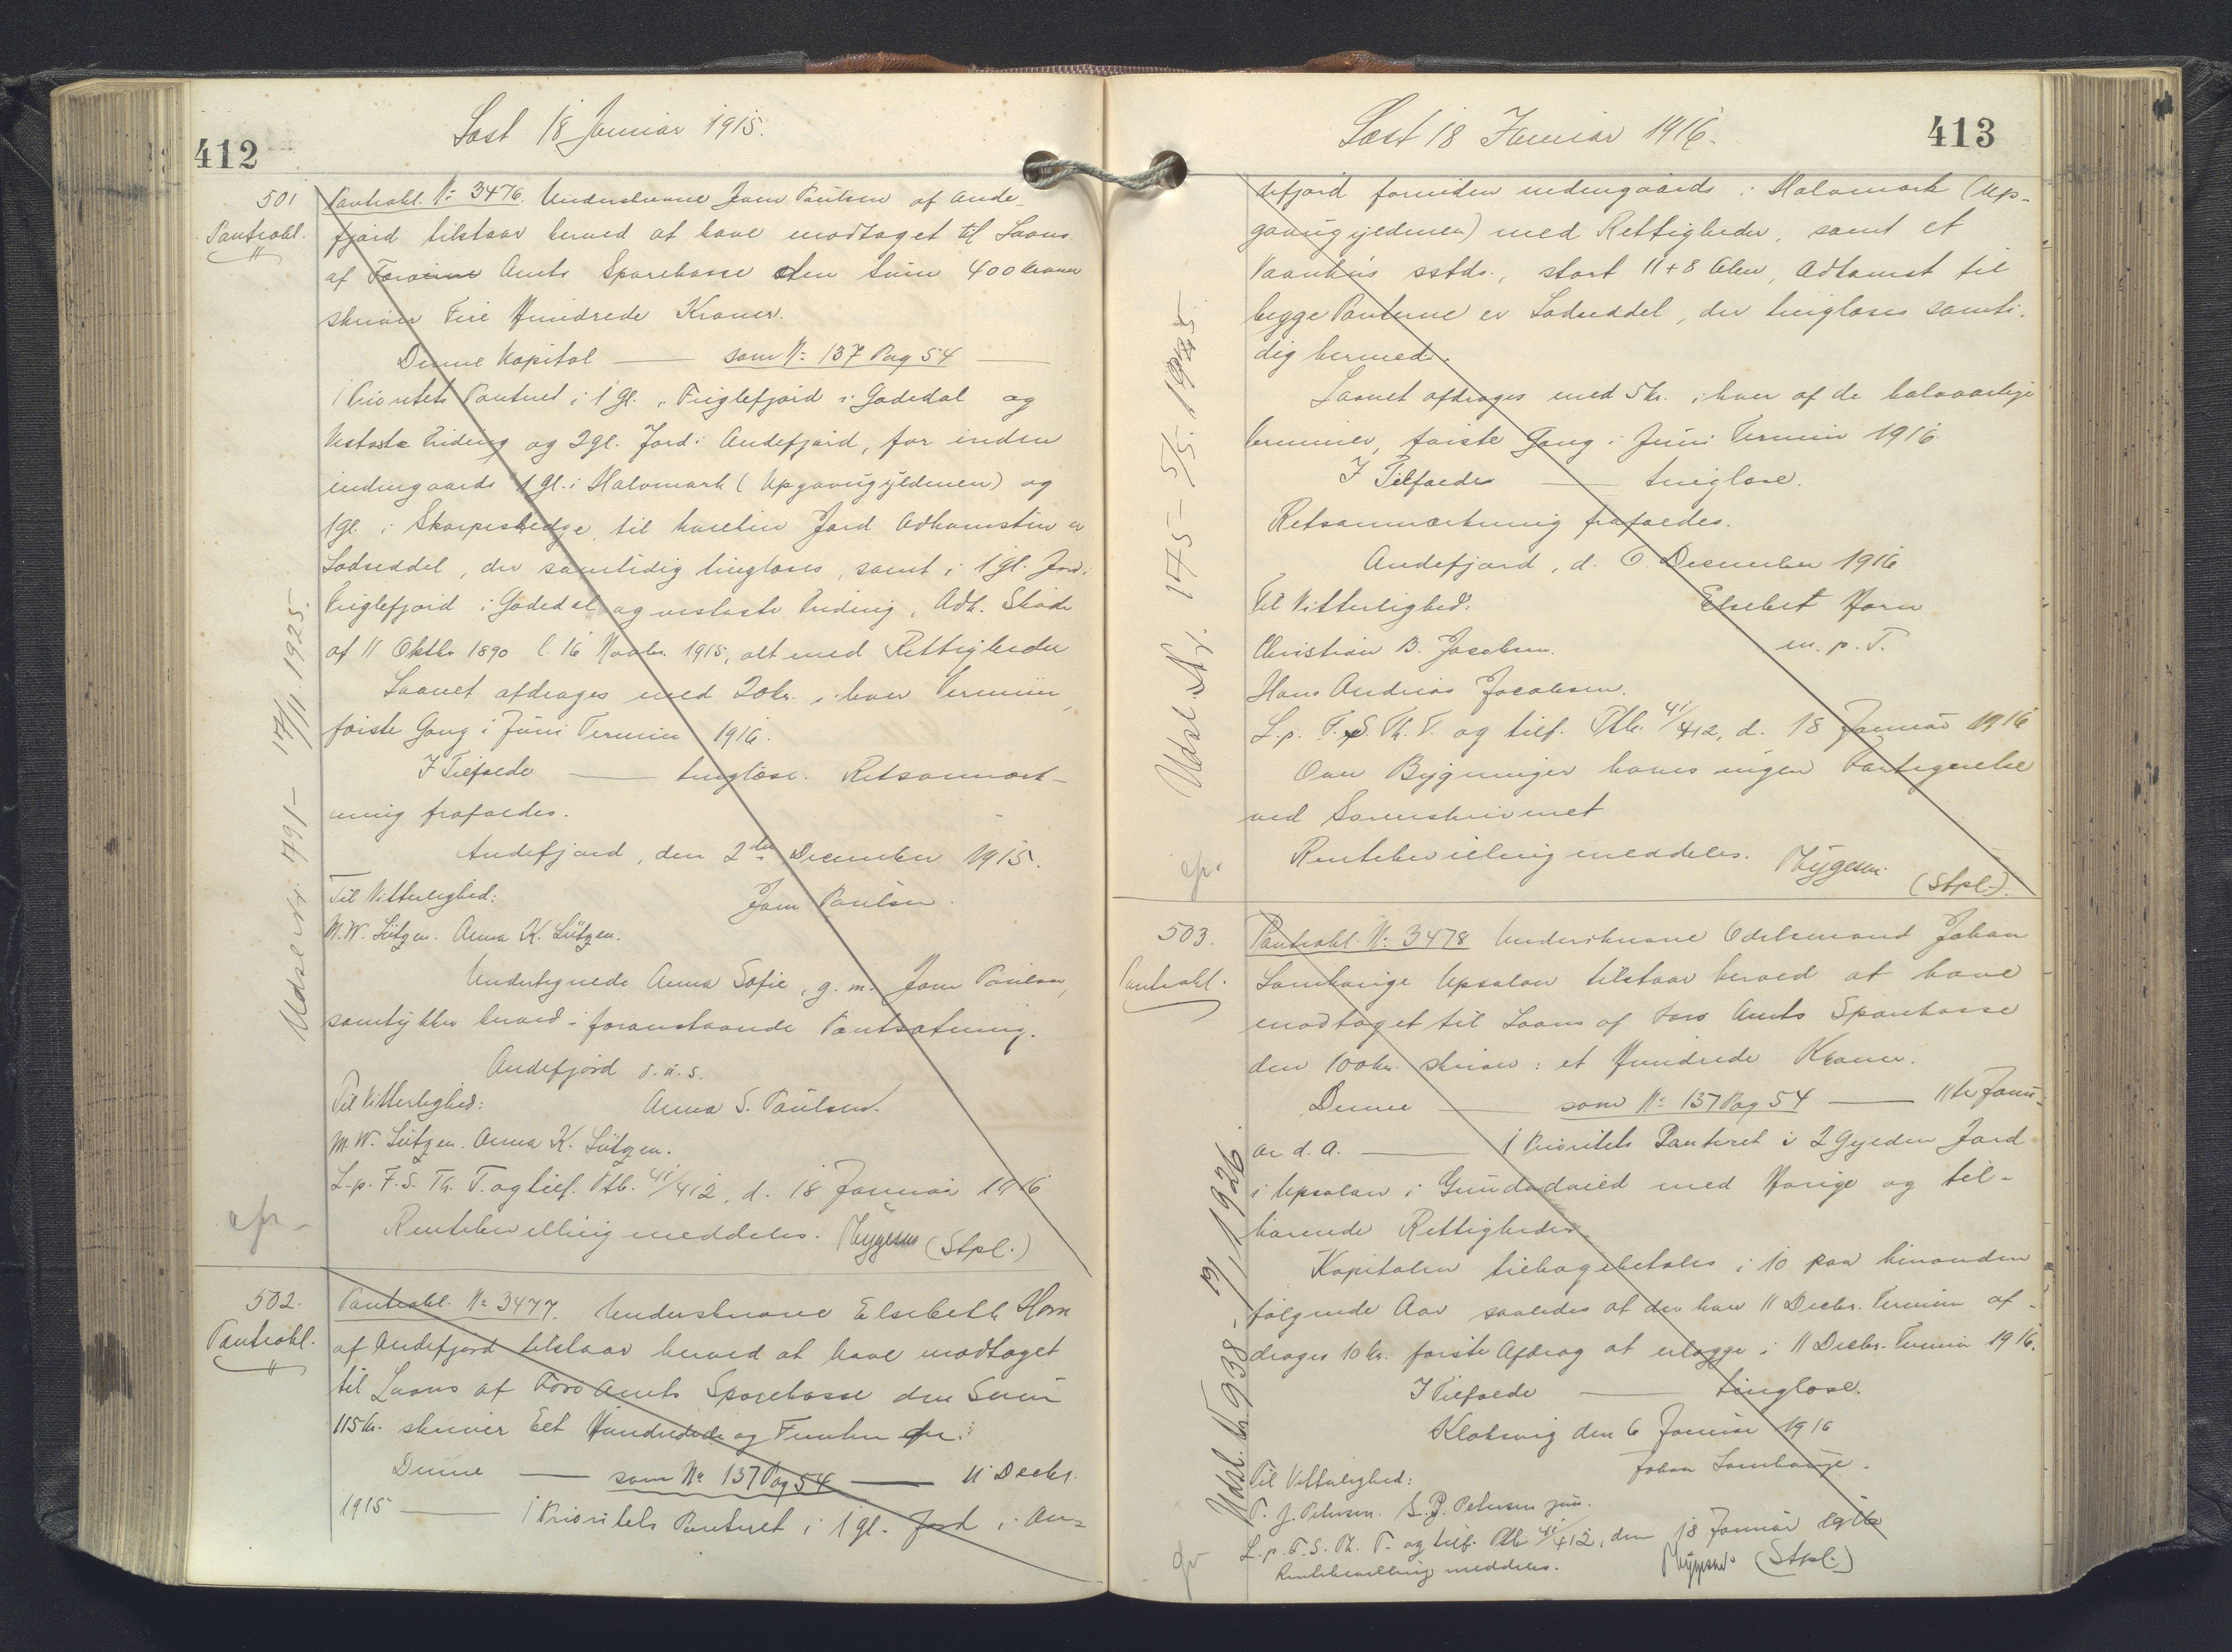 412
Læst 18 Januar 1915.
501
Panteobl.
Panteobl. № 3476. Underskrevne Jam Paulsen af Ande-
fjord tilstaar herved at have modtaget til Laans
af Færøerne Amts Sparekasse den Sum 400 Kroner
skriver Fire Hundrede Kroner.
Denne Kapital — som № 137 Pag 54 —
1 Prioritets Panteret i 1 gl. i Fuglefjord i Gødedal og
og 2 gl. Jord i Andefjord, for inden
indengaards 1 gl. i Halvmark (Upgaungyldenen) og
1 gl. i til hvilken Jord Adkomsten er
Lodseddel, der samtidig tinglæses, samt i 1 gl. Jord i
Fuglefjord i Gødedal og Adk. Skøde
af 11 Oktbr 1890 l. 16 Novbr. 1915, alt med Rettigheder
Laanet afdrages med 20 kr. i hver Termin,
første Gang i Juni Termin 1916.
I Tilfælde — tinglæse. Retsanmærk-
ning frafaldes.
Andefjord, den 2den December 1915.
Til Vitterlighed: Jam Paulsen.
M.W. Lützen. Anna K. Lützen.
Undertegnede Anna Sofie, g. m. Jam Paulsen,
samtykker herved i foranstaaende Pantsætning.
Andefjord d. u. s.
Til Vitterlighed: Anna S. Paulsen.
M.W. Lützen. Anna K. Lützen.
L. p. F. S. Th. T. og tilf. Ptb. 41/412, d. 18 Januar 1916
Rentebevilling meddeles. Mygesen (Stpl.)
Udsl. Nr. 791 - 17/11. 1925.
502.
Panteobl.
Panteobl. № 3477. Underskrevne Elsebeth Horn
af Andefjord tilstaar herved at have modtaget
til Laans af Færø Amts Sparekasse den Sum
115 Kr. skriver Eet Hundrede og Femten Kr.
Denne — som № 137 Pag 54 — 11 Decbr.
1915 — 1 Prioritets Panteret i 1 gl. Jord i An-
413
Læst 18 Januar 1916.
defjord foruden indengaards i Halvmark (Up-
gaungyldenen) med Rettigheder, samt et
Vaanhus sstds., stort 11 + 8 Alen, Adkomst til
begge Panterne er Lodseddel, der tinglæses samti-
dig hermed.
Laanet afdrages med 5 kr. i hver af de halvaarlige
Terminer, første Gang i Juni Termin 1916
I Tilfælde — tinglæse.
Retsanmærkning frafaldes.
Andefjord, d. 6 December 1916
Til Vitterlighed. Elsebet Horn
Christian B. Jacobsen. m. p. T.
Hans Andrias Jacobsen.
L. p. F. S. Th. T. og tilf. Ptb. 41/412, d. 18 Januar 1916
Over Bygninger haves ingen Fortegnelse
ved Sorenskriveriet
Rentebevilling meddeles. Mygesen. (Stpl.).
Udsl. Nr. 175 - 5/5. 1925.
503.
Panteobl.
Panteobl. № 3478 Underskrevne Odelsmand Johan
Lamhauge Upsalon tilstaar herved at have
modtaget til Laans af Færø Amts Sparekasse
den 100 kr. skriver: et Hundrede Kroner.
Denne — som № 137 Pag 54 — 11te Janu-
ar d. A. — 1 Prioritets Panteret i 2 Gylden Jord
i Upsalon i med Hauge og til-
hørende Rettigheder.
Kapitalen tilbagebetales i 10 paa hinanden
følgende Aar saaledes at der hver 11 Decbr. Termin af-
drages 10 kr. første Afdrag at erlægge i 11 Decbr. Termin 1916.
I Tilfælde — tinglæse.
Klaksvig den 6 Januar 1916
Til Vitterlighed: Johan Lamhauge.
P. J. Petersen. S. P. Petersen jun.
L. p. F. S. Th. T. og tilf. Ptb 41/412, den 18 Januar 1916
Rentebevilling meddeles. Mygesen. (Stpl.)
Udsl. Nr. 938 - 13/1 1926.